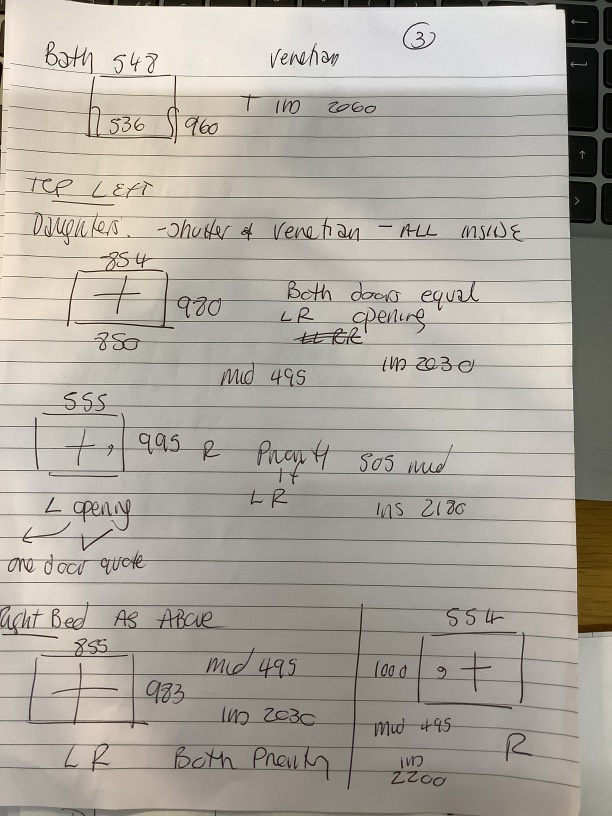 3
Bath 548 Venetian
536 960 + ins 2060
TOP LEFT
Daughters. - Shutter & Venetian - ALL INSIDE
854
980 Both doors equal
LR opening
850
mid 495 ins 2030
555
995 R Priority 505 mid
If
LR ins 2180
L opening
one door quote
Right Bed AS ABOVE
855 mid 495
983
ins 2030
LR Both Priority
554
1000
mid 495
R
ins
2200